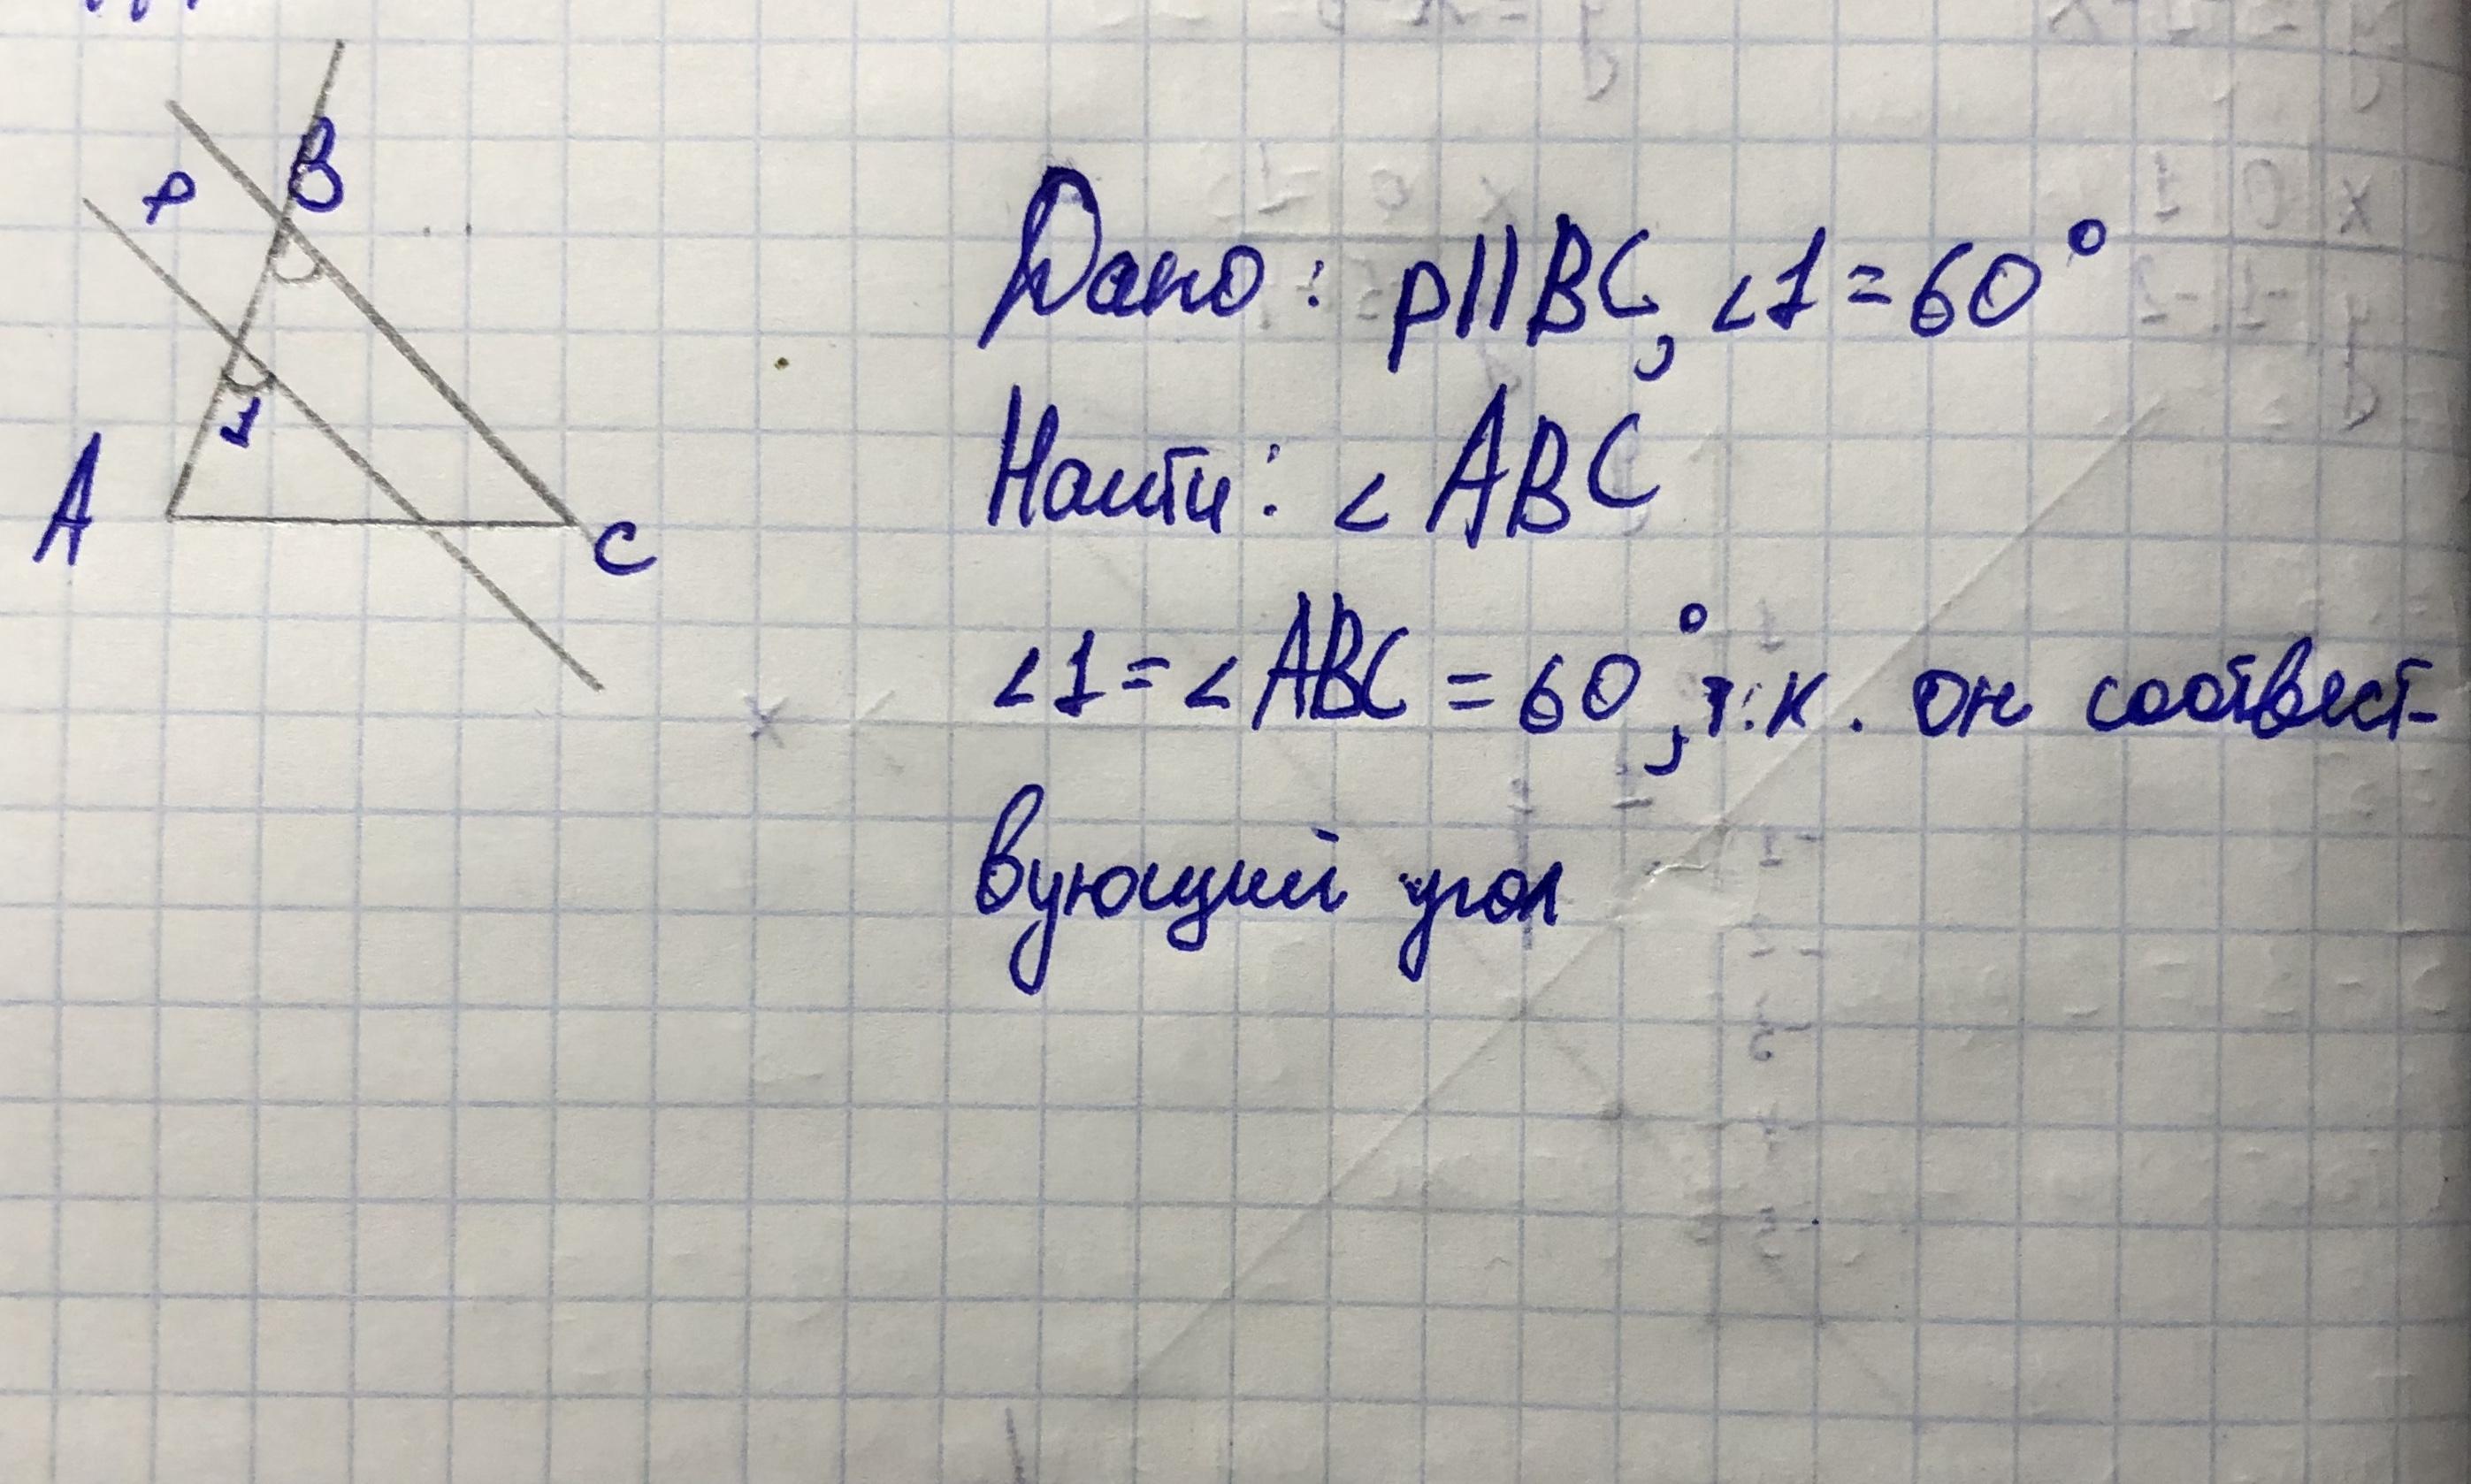 B
P
1
A
C
Дано: p||BC, ∠1 = 60°
Найти: ∠ABC
∠1 = ∠ABC = 60°, т.к. он соотвест-
вующий угол